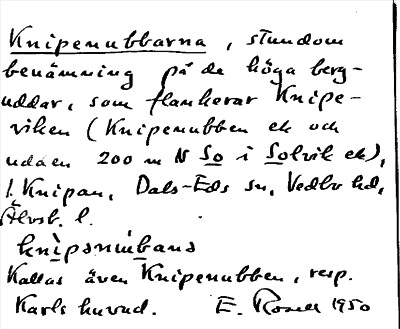 Knipenubbarna, stundom
benämning på de höga berg-
uddar, som flankerar Knipe-
viken (Knipenubben ek och
udden 200 m N So i Solvik ek),
i Knipan, Dals-Eds sn, Vedbo hd,
Älvsb. l.
Kallas även Knipenubben, resp.
Karls huvud. E. 1950